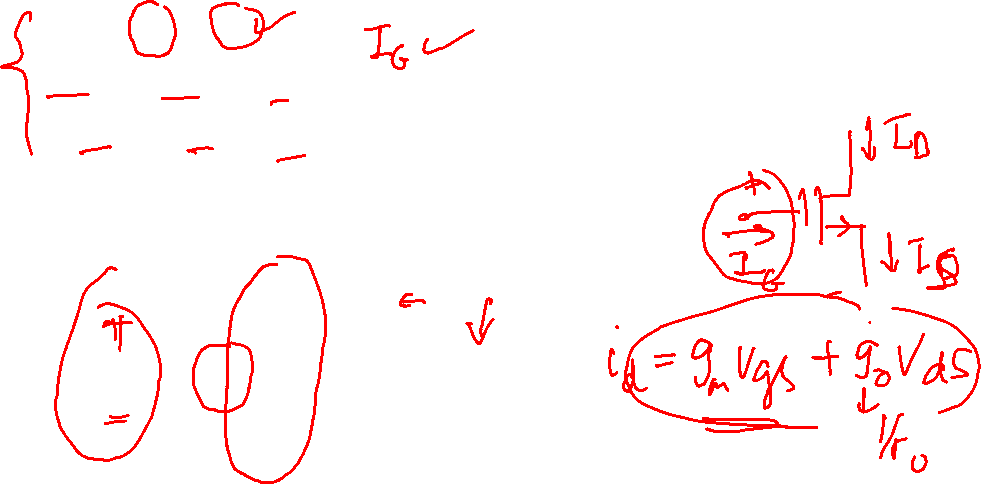 I_G ✓
↓ I_D
+
I_G
↓ I_S
i_d = g_m v_gs + g_o v_ds
↓
1/r_o